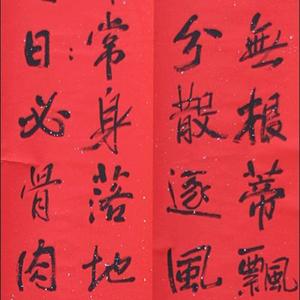 無根蒂飄
分散逐風
常身落地
日必骨肉